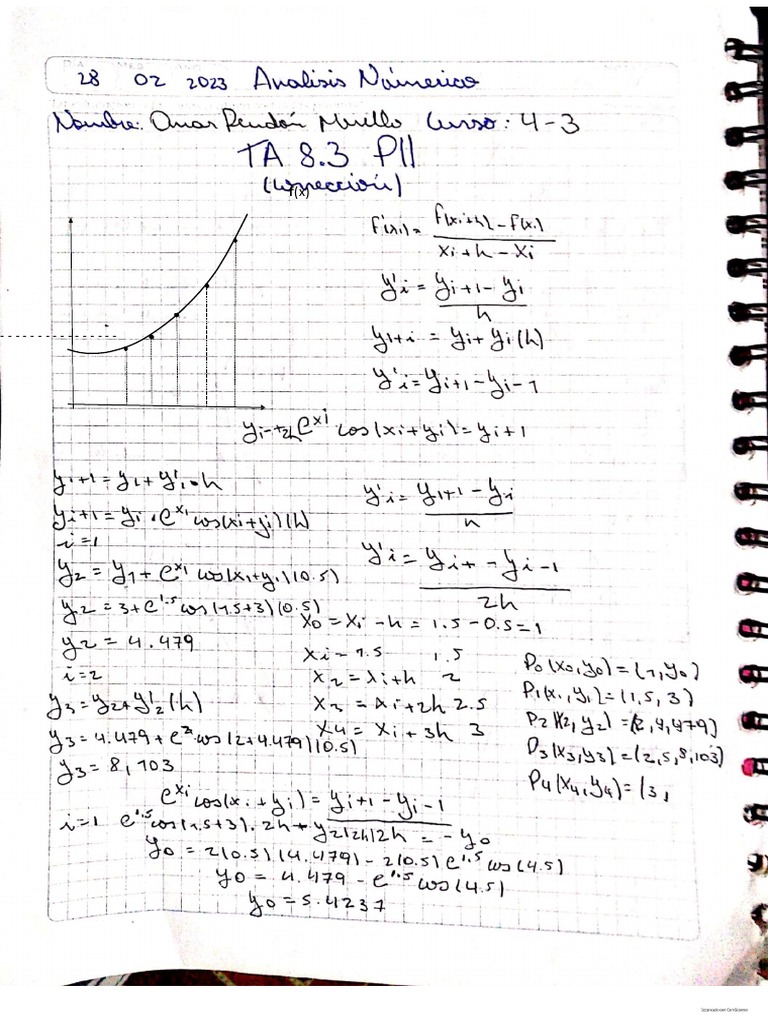 28 02 2023 Analisis Númerico
Nombre: Omar Rendón Murillo Curso: 4-3
TA 8.3 P11
(Corrección)
f(x)
f'(xi) = f(xi+h) - f(xi) / xi+h-xi
y'i = yi+1 - yi / h
y1+i = yi + yi(h)
y'i = yi+1 - yi-1
yi-+2h e^xi cos(xi+yi) = yi+1
yi+1 = y1 + y'i · h
yi+1 = yi · e^xi cos(xi+yi)(h)
i=1
y2 = y1 + e^x1 cos(x1+y1)(0.5)
y2 = 3+e^1.5 cos(1.5+3)(0.5)
y2 = 4.479
i=2
y3 = y2+y'2(h)
y3 = 4.479+e^2 cos(2+4.479)(0.5)
y3 = 8,103
y'i = y1+1 - yi / h
y'i = yi+ - yi-1 / 2h
x0 = xi - h = 1.5 - 0.5 = 1
xi = 1.5 1.5
x2 = xi+h 2
x3 = xi+2h 2.5
x4 = xi+3h 3
P0(x0,y0) = (1,y0)
P1(x1,y1) = (1,5, 3)
P2(x2,y2) = (2,4,479)
P3(x3,y3) = (2,5,8,103)
P4(x4,y4) = (3,
e^xi cos(xi+yi) = yi+1 - yi-1
i=1 e^1.5 cos(1.5+3).2h + y2(2h)2h = -y0
y0 = 2(0.5)(4.479) - 2(0.5)e^1.5 cos(4.5)
y0 = 4.479 - e^1.5 cos(4.5)
y0 = 5.4237
Scanneado con CamScanner